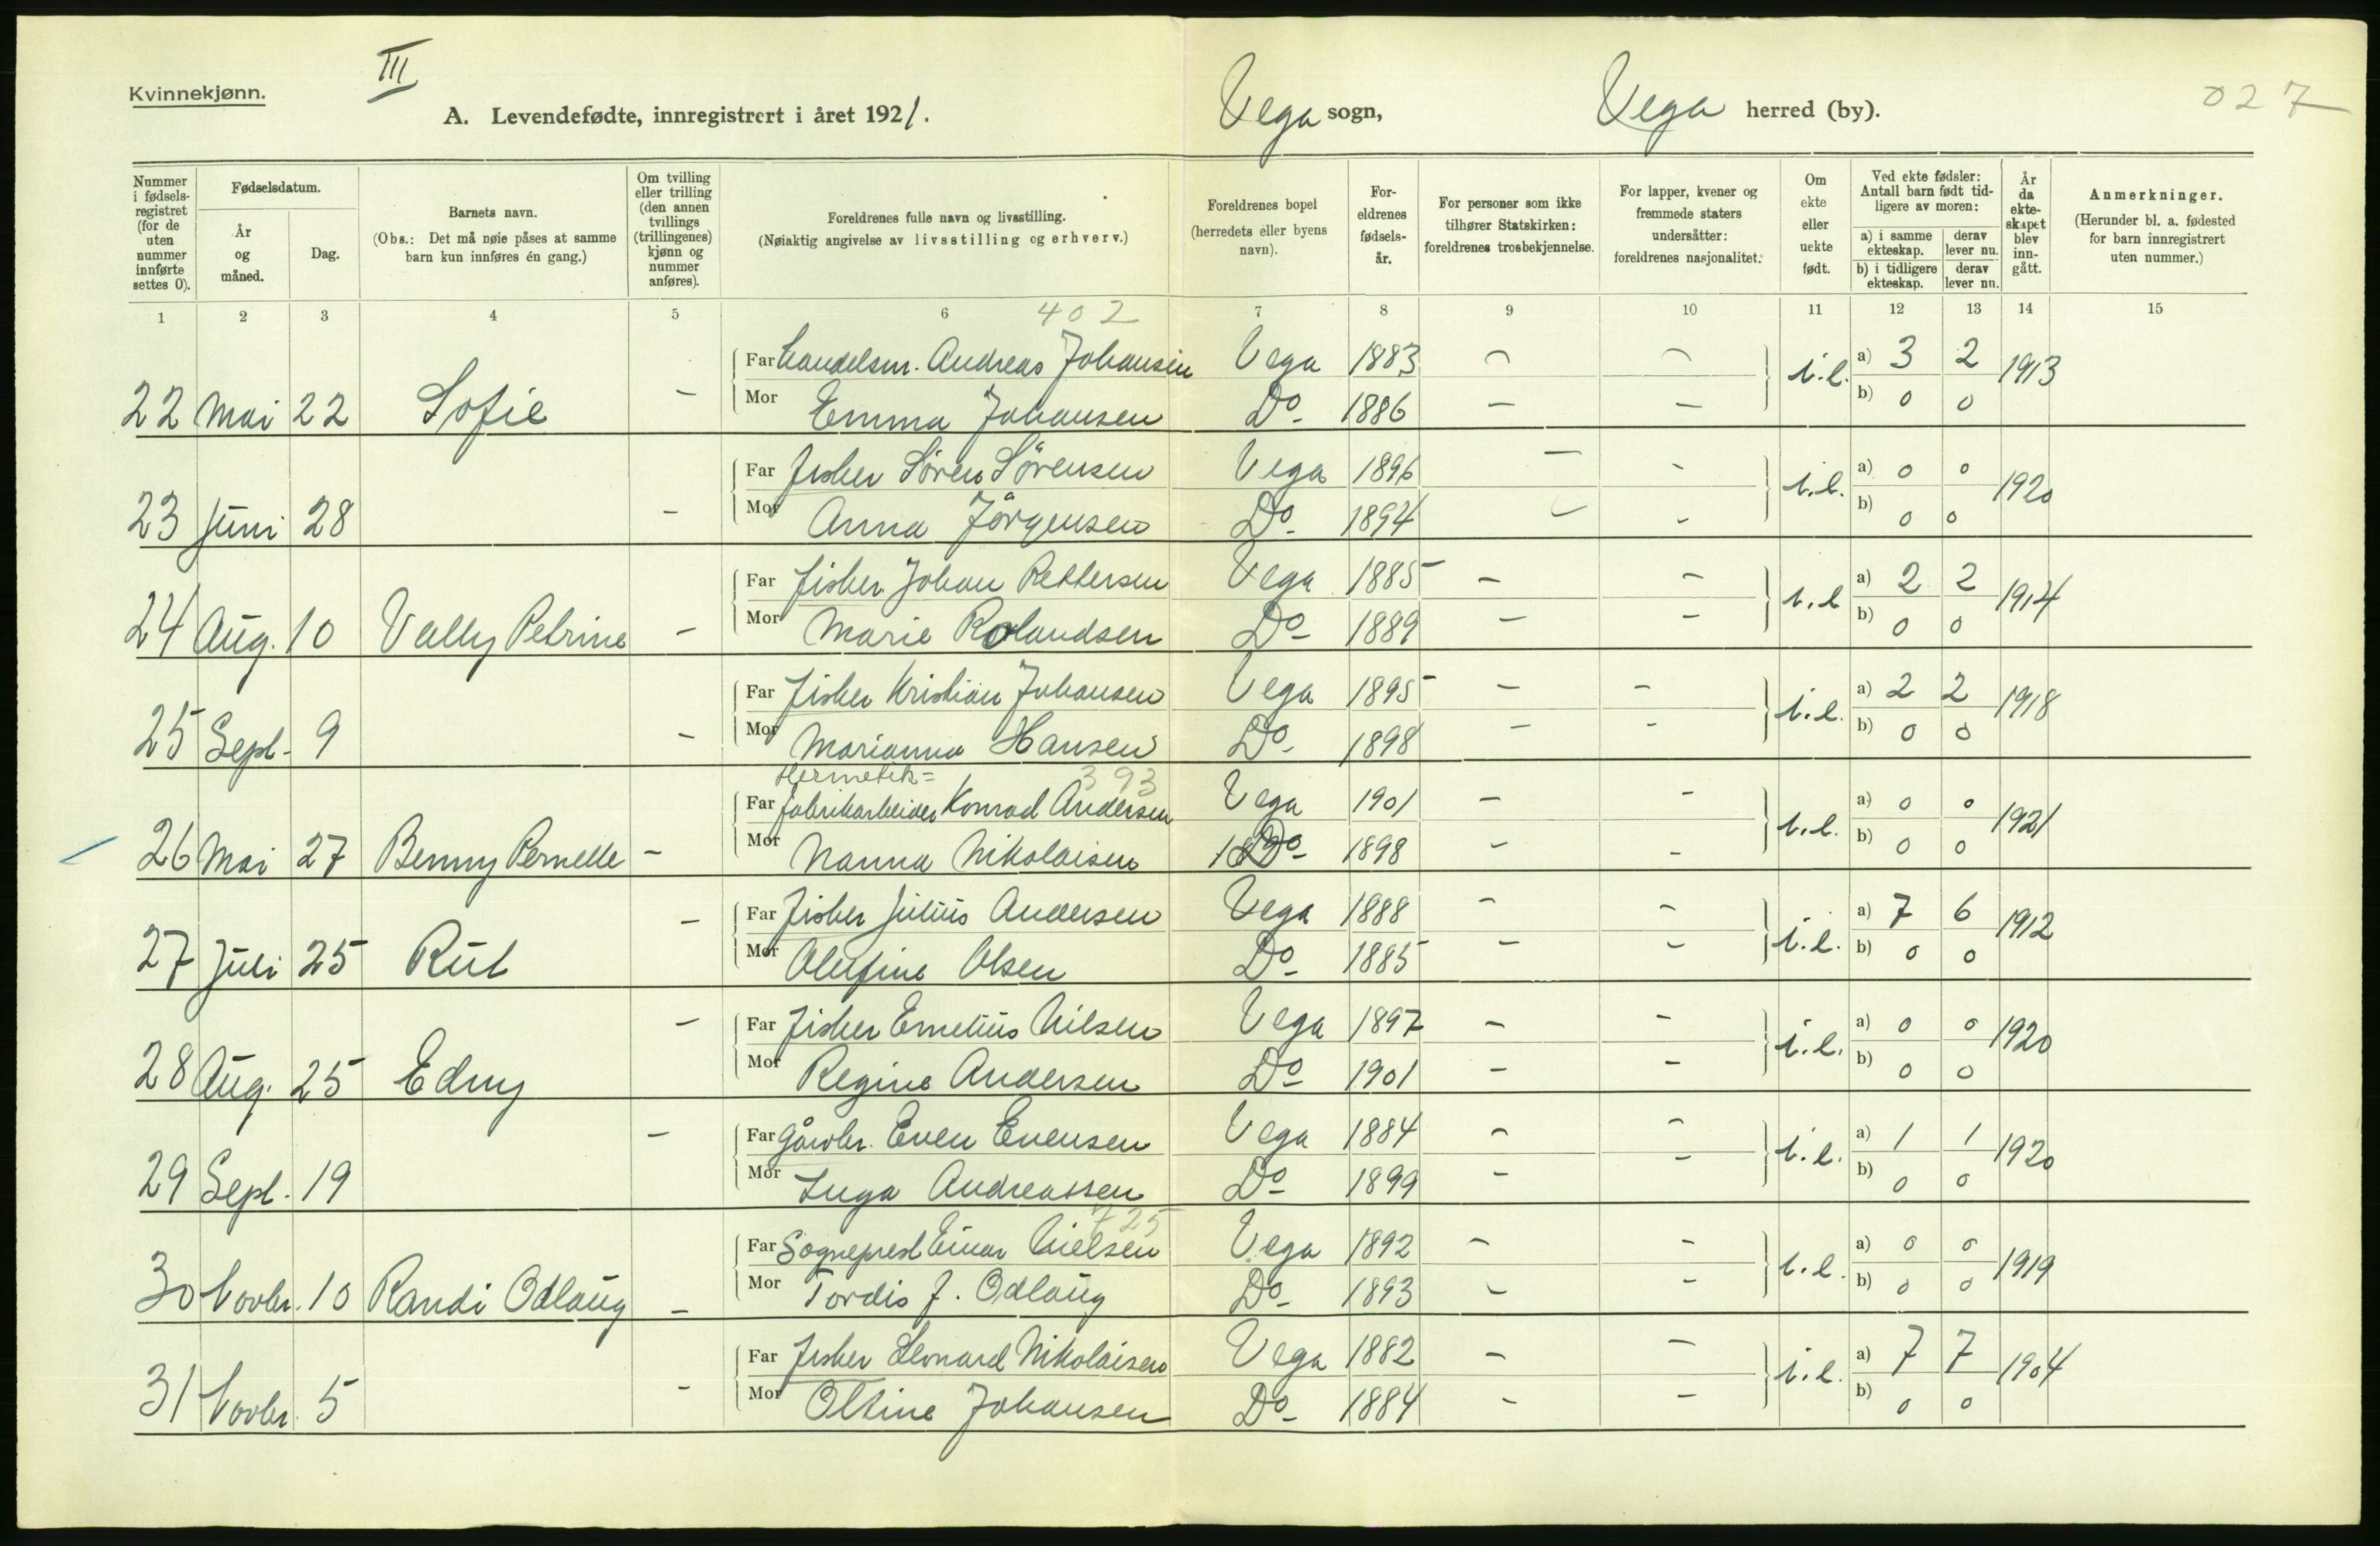 III
Kvinnekjønn.
A. Levendefødte, innregistrert i året 1921.
Vega sogn, Vega herred (by).
027
Nummer i fødselsregistret (for de uten nummer innførte settes 0).
Fødselsdatum.
År og måned.
Dag.
Barnets navn.
(Obs.: Det må nøie påses at samme barn kun innføres én gang.)
Om tvilling eller trilling (den annen tvillings (trillingenes) kjønn og nummer anføres).
Foreldrenes fulle navn og livsstilling.
(Nøiaktig angivelse av livsstilling og erhverv.)
Foreldrenes bopel (herredets eller byens navn).
Foreldrenes fødselsår.
For personer som ikke tilhører Statskirken: foreldrenes trosbekjennelse.
For lapper, kvener og fremmede staters undersåtter: foreldrenes nasjonalitet.
Om ekte eller uekte født.
Ved ekte fødsler: Antall barn født tidligere av moren:
a) i samme ekteskap. derav lever nu.
b) i tidligere ekteskap. derav lever nu.
År da ekteskapet blev inngått.
Anmerkninger.
(Herunder bl. a. fødested for barn innregistrert uten nummer.)
1 2 3 4 5 6 7 8 9 10 11 12 13 14 15
402
Far handelsm. Andreas Johansen Vega 1883 - - a) 3 2
22 Mai 22 Sofie - i.e. 1913
Mor Emma Johansen Do- 1886 - - b) 0 0
Far fisker Sören Sörensen Vega 1896 - - a) 0 0
23 Juni 28 - i.e. 1920
Mor Anna Jörgensen Do- 1894 - - b) 0 0
Far fisker Johan Pettersen Vega 1885 - - a) 2 2
24 Aug. 10 Vally Petrine - i.e 1914
Mor Marie Rolandsen Do- 1889 - - b) 0 0
Far fisker Kristian Johansen Vega 1895 - - a) 2 2
25 Sept. 9 - i.e. 1918
Mor Marianna Hansen Do- 1898 - - b) 0 0
Hermetik= 393
Far fabrikarbeider Konrad Andersen Vega 1901 - - a) 0 0
26 Mai 27 Benny Pernelle - i.e. 1921
Mor Nanna Nikolaisen Do- 1898 - - b) 0 0
Far fisker Julius Andersen Vega 1888 - - a) 7 6
27 Juli 25 Rut - i.e. 1912
Mor Olufine Olsen Do- 1885 - - b) 0 0
Far fisker Emelius Nilsen Vega 1897 - - a) 0 0
28 Aug. 25 Edny - i.e. 1920
Mor Regine Andersen Do- 1901 - - b) 0 0
Far gårdbr. Even Evensen Vega 1884 - - a) 1 1
29 Sept. 19 - i.e. 1920
Mor Inga Andreassen Do- 1899 - - b) 0 0
725
Far Sogneprest Einar Nielsen Vega 1892 - - a) 0 0
30 Novbr. 10 Randi Odlaug - i.e. 1919
Mor Tordis f. Odlaug Do- 1893 - - b) 0 0
Far fisker Leonard Nikolaisen Vega 1882 - - a) 7 7
31 Novbr. 5 - i.e. 1904
Mor Oltine Johansen Do- 1884 - - b) 0 0